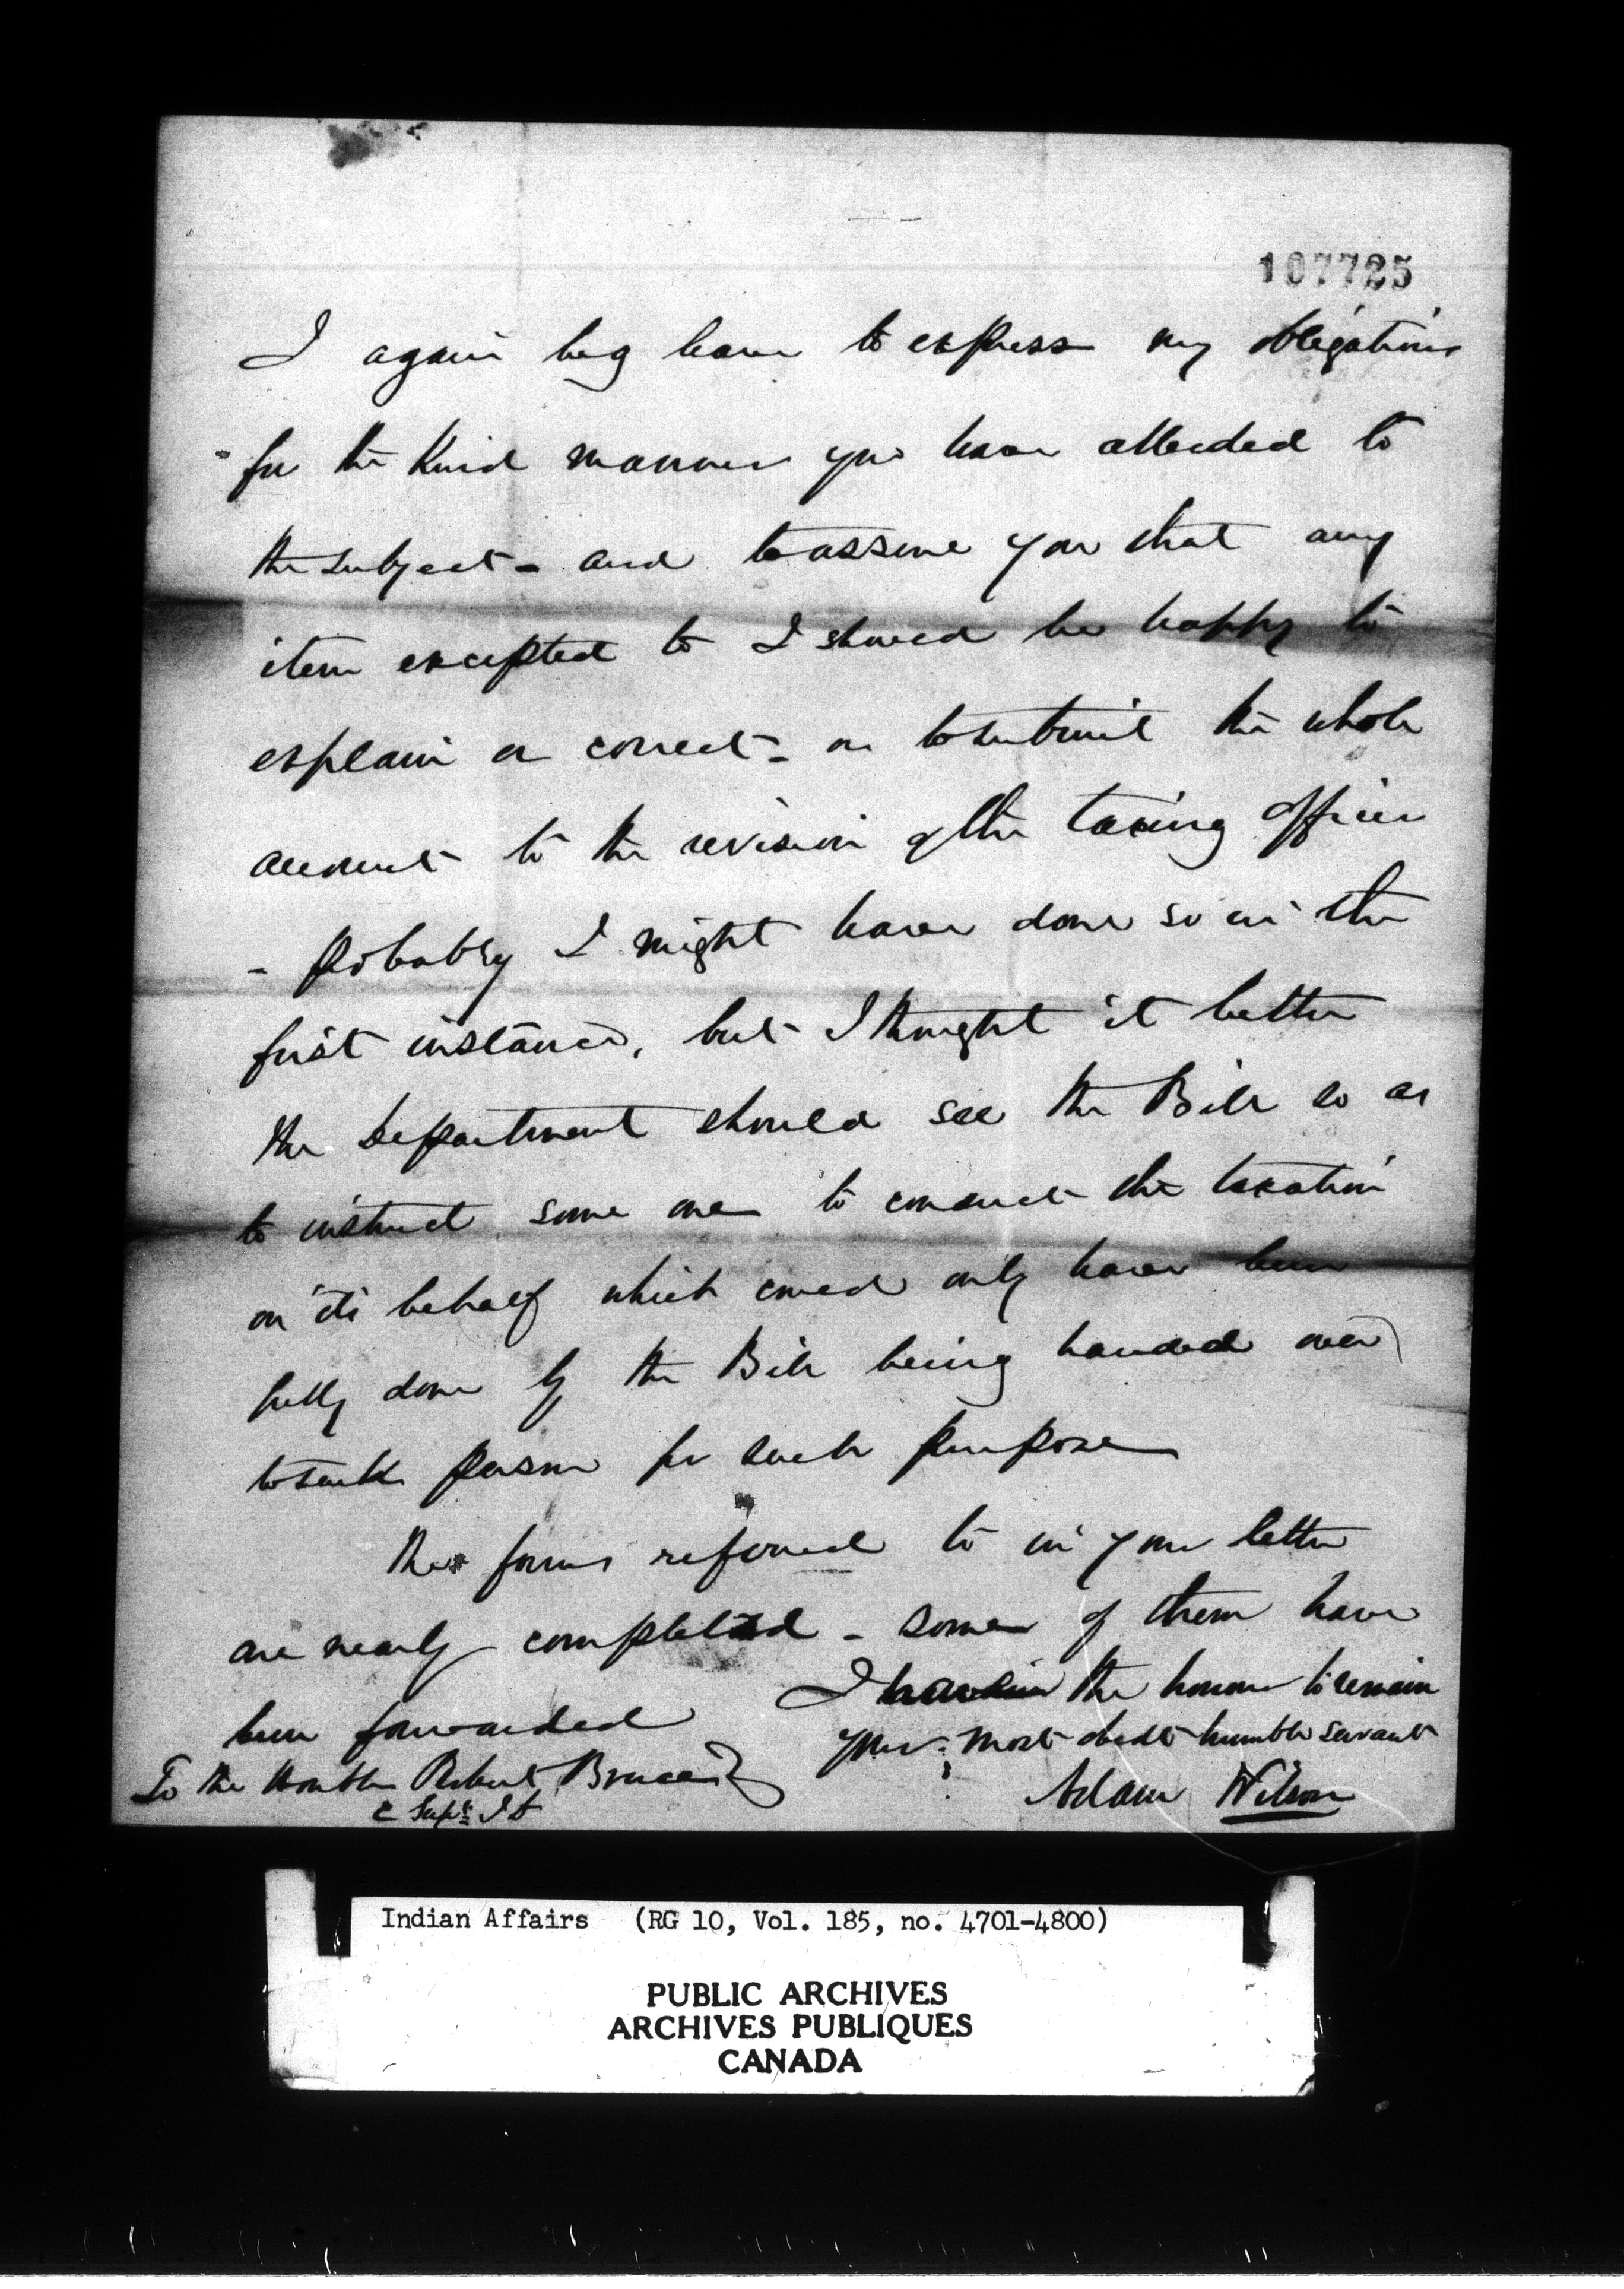 107725
I again beg leave to express my obligations
for the kind manner you have attended to
the subject - and to assure you that any
item excepted to I should be happy to
explain or correct - or to submit the whole
account to the revision of the taxing officer
- probably I might have done so in the
first instance, but I thought it better
the Department should see the Bill so as
to instruct some one to conduct the taxation
on its behalf which could only have been
fully done by the Bill being handed over
to such person for such purpose
The forms referred to in your letter
are nearly completed - some of them have
been forwarded
I have the honour to remain
your most obedt humble servant
Adam Wilson
To the Honble Robert Bruce
Supt
Indian Affairs (RG 10, Vol. 185, no. 4701-4800)
PUBLIC ARCHIVES
ARCHIVES PUBLIQUES
CANADA